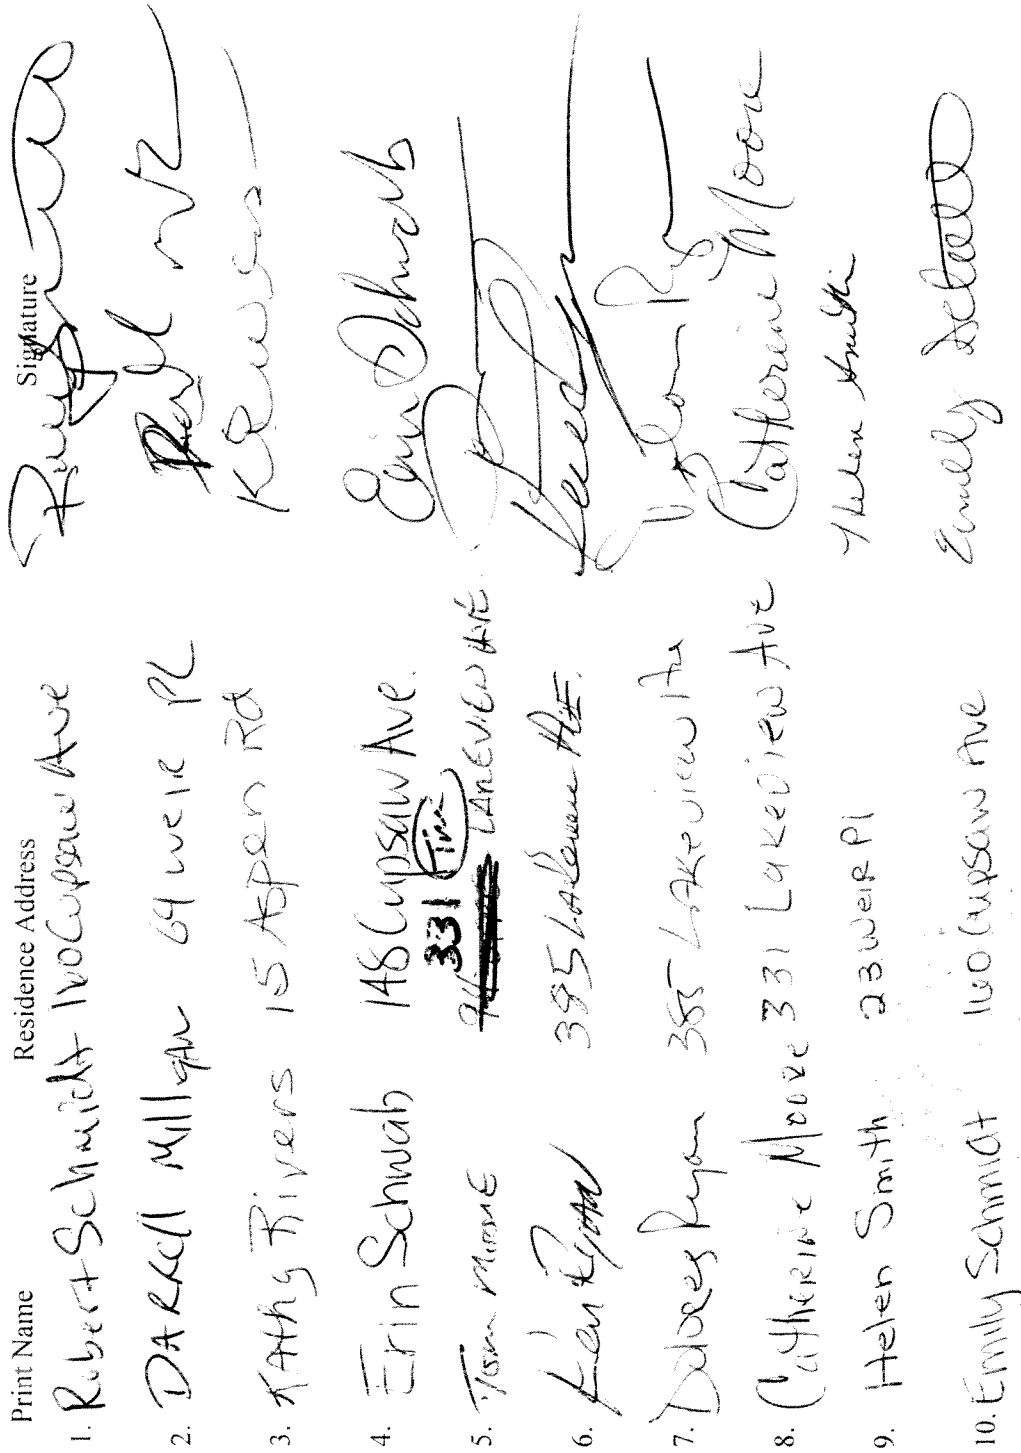 Print Name Residence Address Signature
1. Robert Schmidt 160 Cupsaw Ave
2. DARRell Milligan 64 weir PL
3. KAthy Rivers 15 Aspen Rd
4. Erin Schwab 148 Cupsaw Ave. Erin Schwab
331
5. Tom LAKEVIEW AVE.
6. Ken Ryan 385 Lakeview AVE.
7. Dolores Ryan 385 Lakeview Ave
8. CatHerine Moore 331 Lakeview Ave Catherine Moore
9. Helen Smith 23 Weir Pl Helen Smith
10. Emily Schmidt 160 Cupsaw Ave Emily